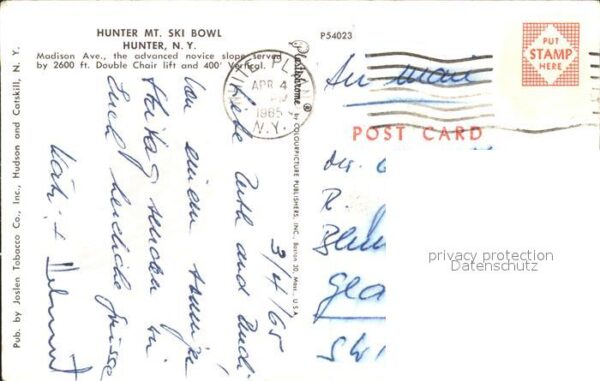 HUNTER MT. SKI BOWL
HUNTER, N. Y.
Madison Ave., the advanced novice slope served
by 2600 ft. Double Chair lift and 400' Vertical.
P54023
PUT
STAMP
HERE
APR 4
1965
N.Y.
Air Mail
POST CARD
Pub. by Joslen Tobacco Co., Inc., Hudson and Catskill, N. Y.
Plastichrome® by COLOURPICTURE PUBLISHERS, INC., Boston 30, Mass., U.S.A.
3/4/65
Liebe Ruth and Ruedi
Von einem sonnigen
senden wir
Euch herzliche Grüsse
Käti +
R.
privacy protection
Datenschutz